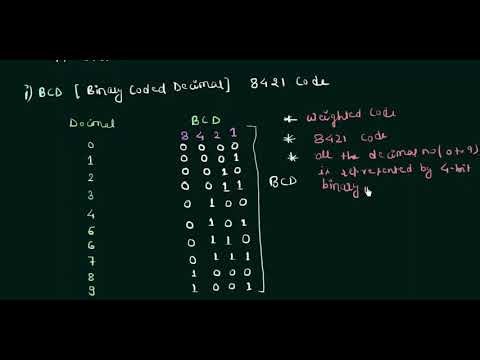 i) BCD [Binary Coded Decimal] 8421 Code
Decimal BCD
8 4 2 1
0 0 0 0 0
1 0 0 0 1
2 0 0 1 0
3 0 0 1 1
4 0 1 0 0
5 0 1 0 1
6 0 1 1 0
7 0 1 1 1
8 1 0 0 0
9 1 0 0 1
BCD
* Weighted Code
* 8421 Code
* all the decimal no (0 to 9)
is represented by 4-bit
binary